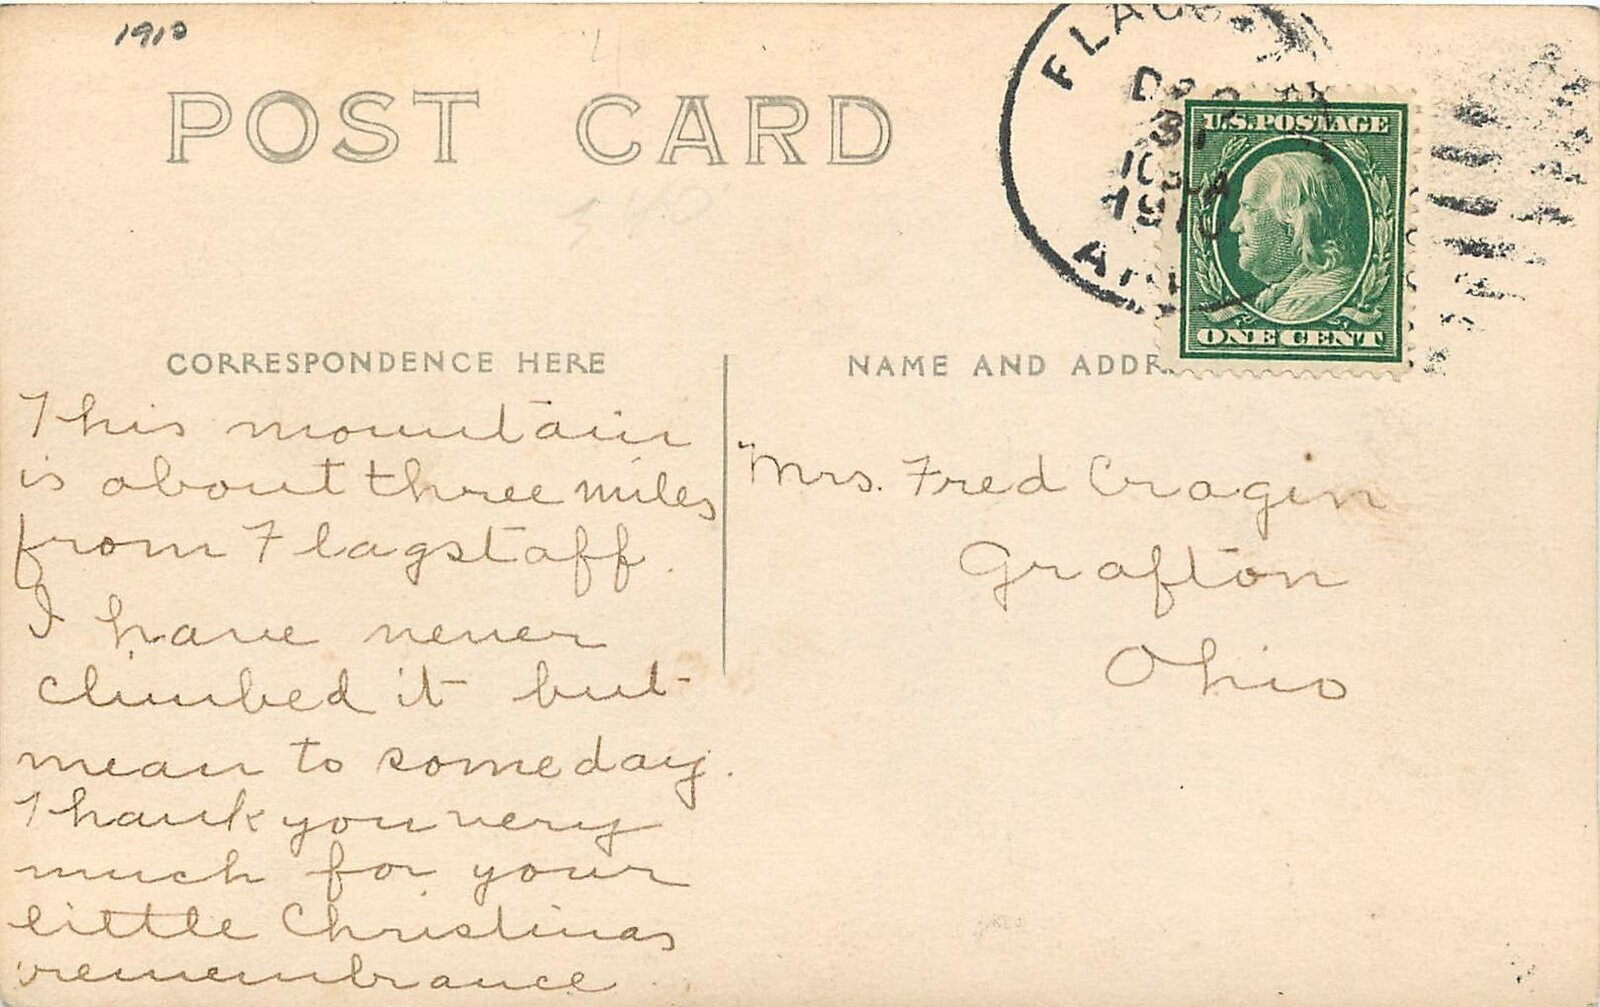 1910
POST CARD
FLAGS
DEC
31
10
1910
ARI
U.S. POSTAGE
ONE CENT
CORRESPONDENCE HERE
NAME AND ADDR
This mountain
is about three miles
from Flagstaff.
I have never
climbed it but
mean to someday.
Thank you very
much for your
little Christmas
remembrance
Mrs. Fred Cragin
Grafton
Ohio